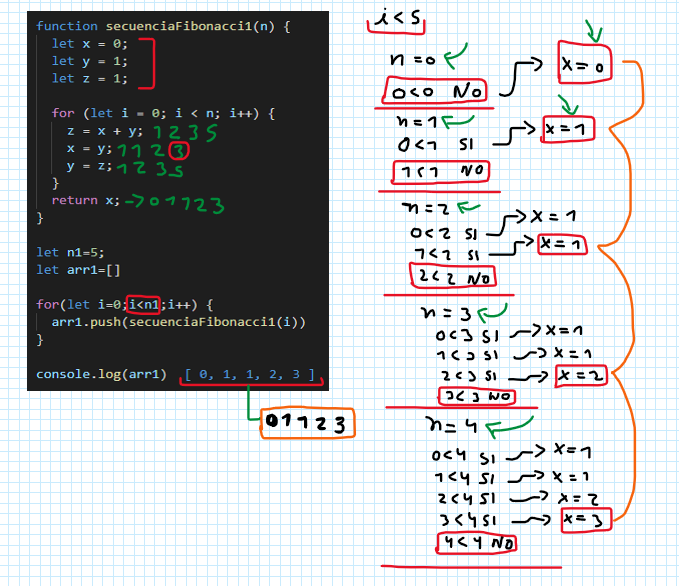 function secuenciaFibonacci1(n) {
let x = 0;
let y = 1;
let z = 1;
for (let i = 0; i < n; i++) {
z = x + y; 1 2 3 5
x = y; 1 1 2 3
y = z; 1 2 3 5
}
return x; -> 0 1 1 2 3
}
let n1=5;
let arr1=[]
for(let i=0;i<n1;i++) {
arr1.push(secuenciaFibonacci1(i))
}
console.log(arr1) [ 0, 1, 1, 2, 3 ]
0 1 1 2 3
i<5
n=0
0<0 NO
x=0
n=1
0<1 SI
x=1
1<1 NO
n=2
0<2 SI x=1
1<2 SI x=1
2<2 NO
n=3
0<3 SI x=1
1<3 SI x=1
2<3 SI x=2
3<3 NO
n=4
0<4 SI x=1
1<4 SI x=1
2<4 SI x=2
3<4 SI x=3
4<4 NO